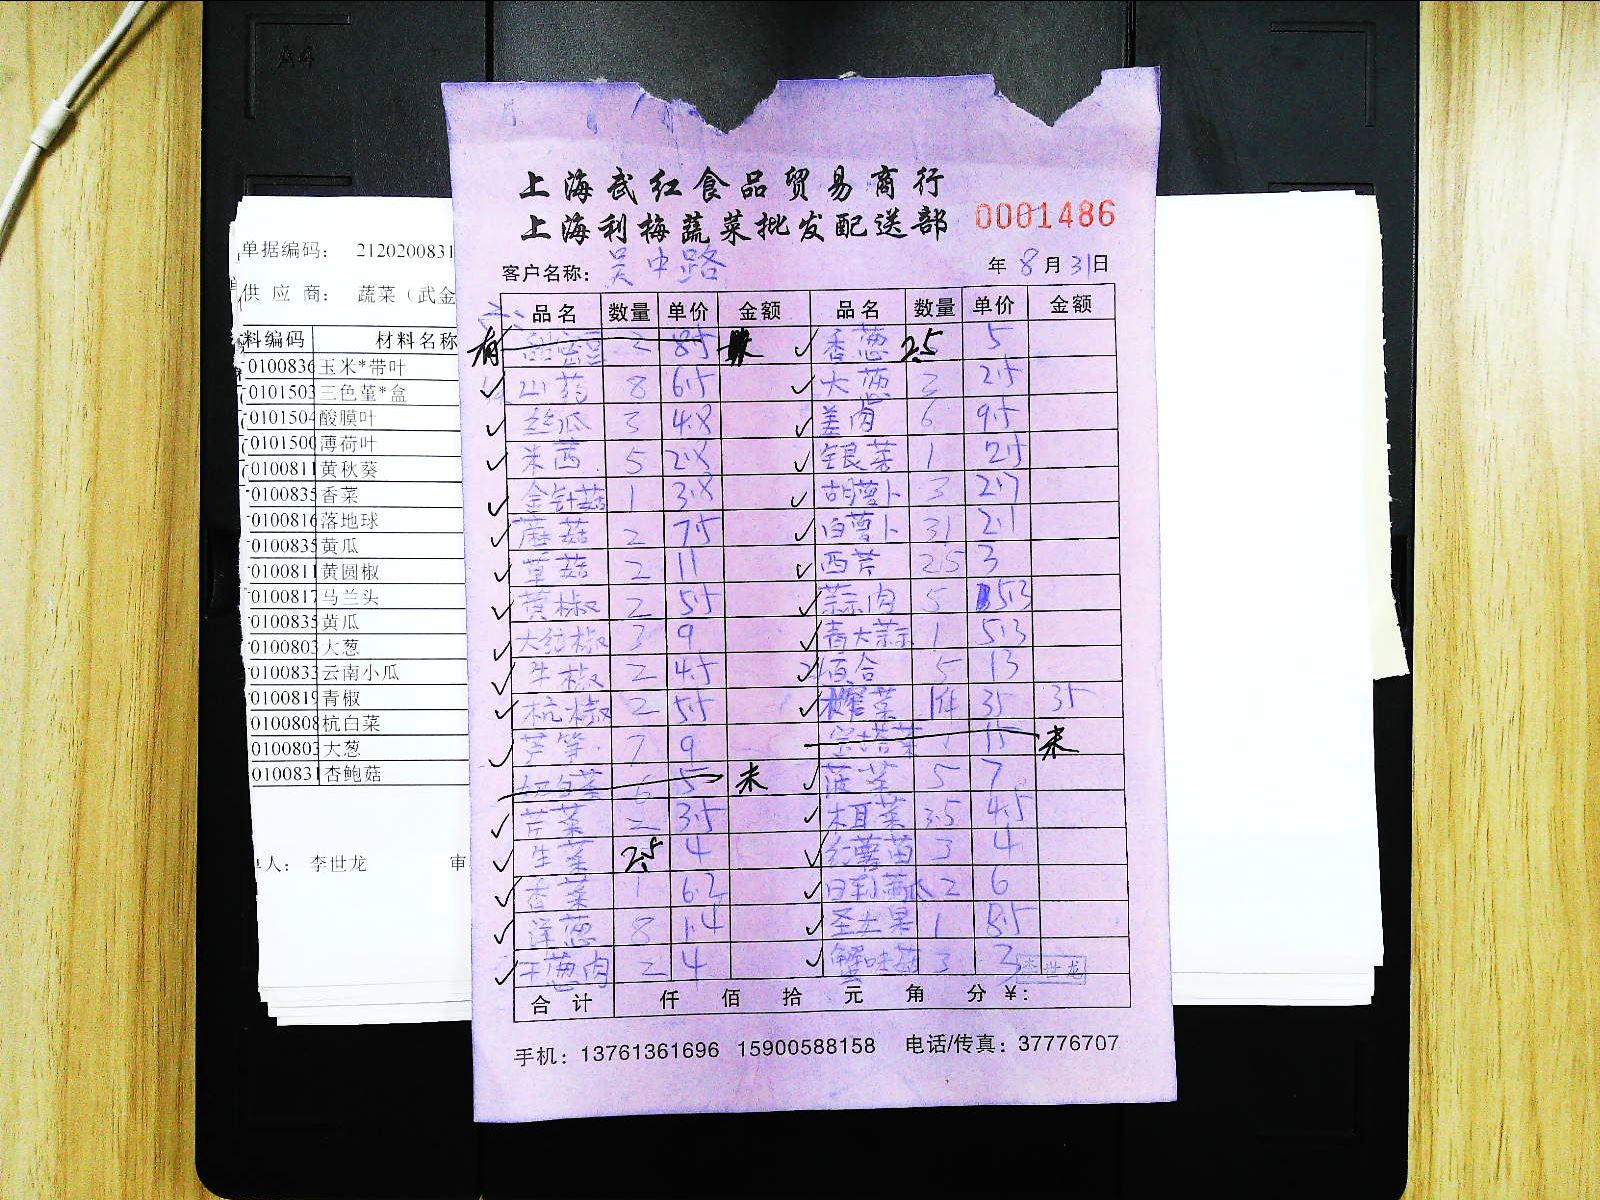 A4
上海武红食品贸易商行
上海利梅蔬菜批发配送部 0001486
客户名称: 吴中路 年 8 月 31 日
品名 数量 单价 金额 品名 数量 单价 金额
2 8.5 香葱 2.5 5
山药 8 6.5 大葱 2 2.5
丝瓜 3 4.8 姜肉 6 9.5
米苋 5 2.8 银菜 1 2.5
金针菇 1 3.8 胡萝卜 3 2.7
蘑菇 2 7.5 白萝卜 31 2.1
草菇 2 11 西芹 2.5 3
黄椒 2 5.5 蒜肉 5 5.3
大红椒 3 9 青大蒜 1 5.3
牛椒 2 4.5 百合 5 13
杭椒 2 5.5 榨菜 1件 35 35
芦笋 7 9 未
6 5 未 菠菜 5 7
芹菜 2 3.5 木耳菜 3.5 4.5
生菜 2.5 4 红薯苗 3 4
香菜 1 6.2 日本黄瓜 2 6
洋葱 8 1.4 圣女果 1 8.5
干葱肉 2 4 蟹味菇 3 3
李世龙
合计 仟 佰 拾 元 角 分 ¥:
手机: 13761361696 15900588158 电话/传真: 37776707
单据编码: 2120200831
供应商: 蔬菜（武金
料编码 材料名称
0100836 玉米*带叶
0101503 三色堇*盒
0101504 酸膜叶
0101500 薄荷叶
0100811 黄秋葵
0100835 香菜
0100816 落地球
0100835 黄瓜
0100811 黄圆椒
0100817 马兰头
0100835 黄瓜
0100803 大葱
0100833 云南小瓜
0100819 青椒
0100808 杭白菜
0100803 大葱
0100831 杏鲍菇
人: 李世龙 审